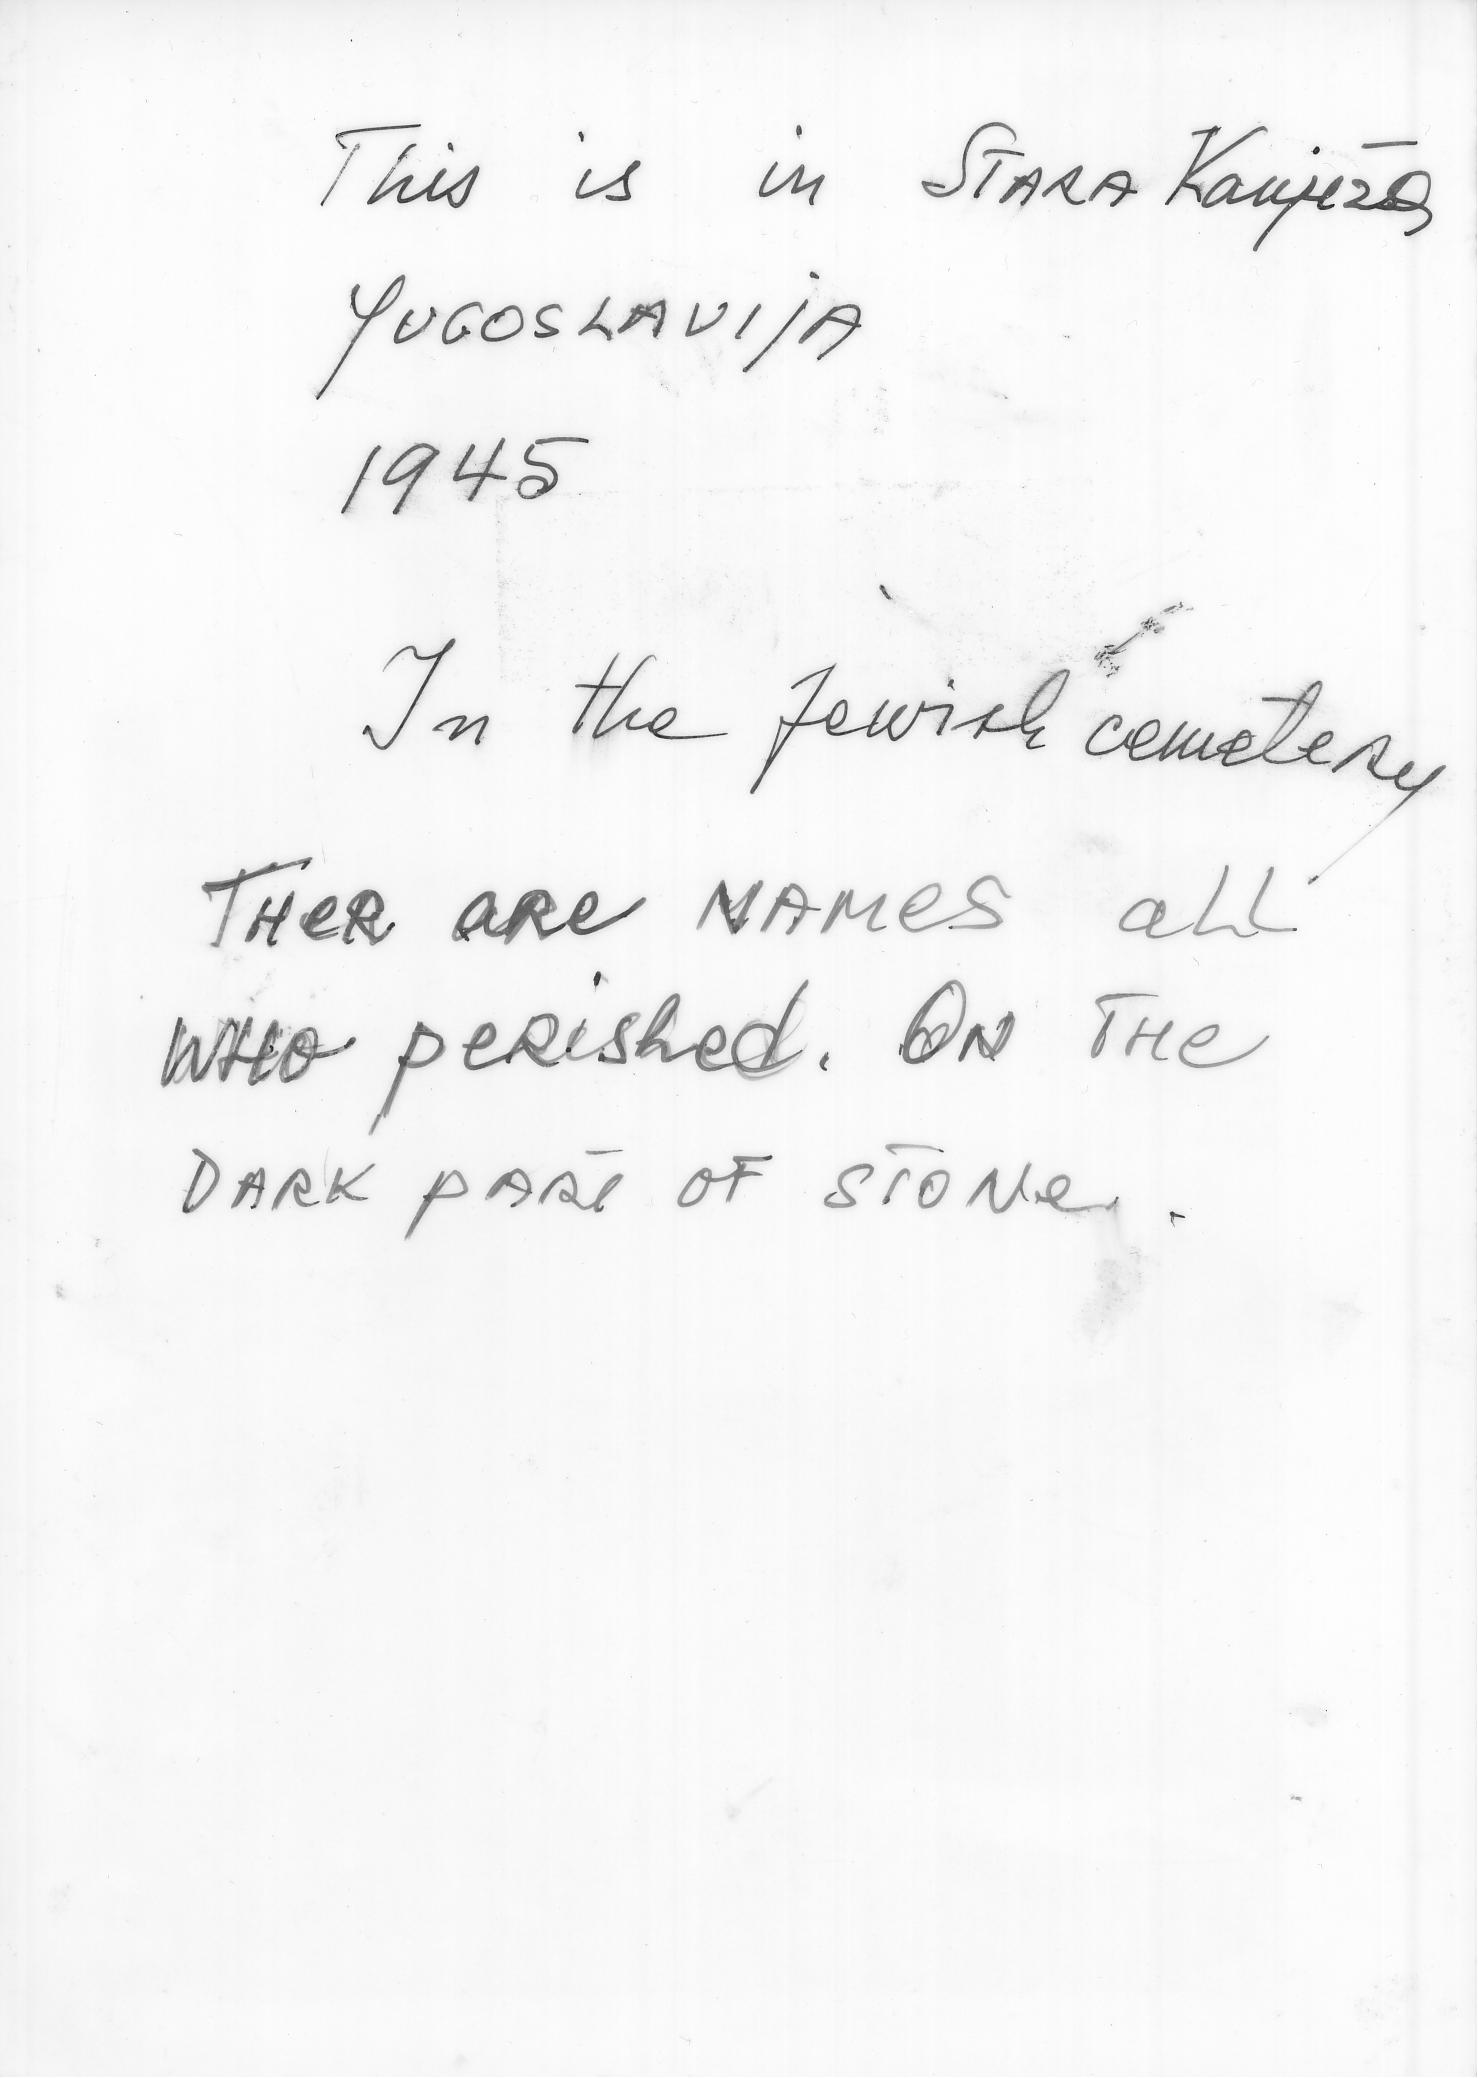 This is in STARA Kanjiža
YUGOSLAVIJA
1945
In the Jewish cemetery
THER are NAMES all
WHO perished. ON THE
DARK PART OF STONE.